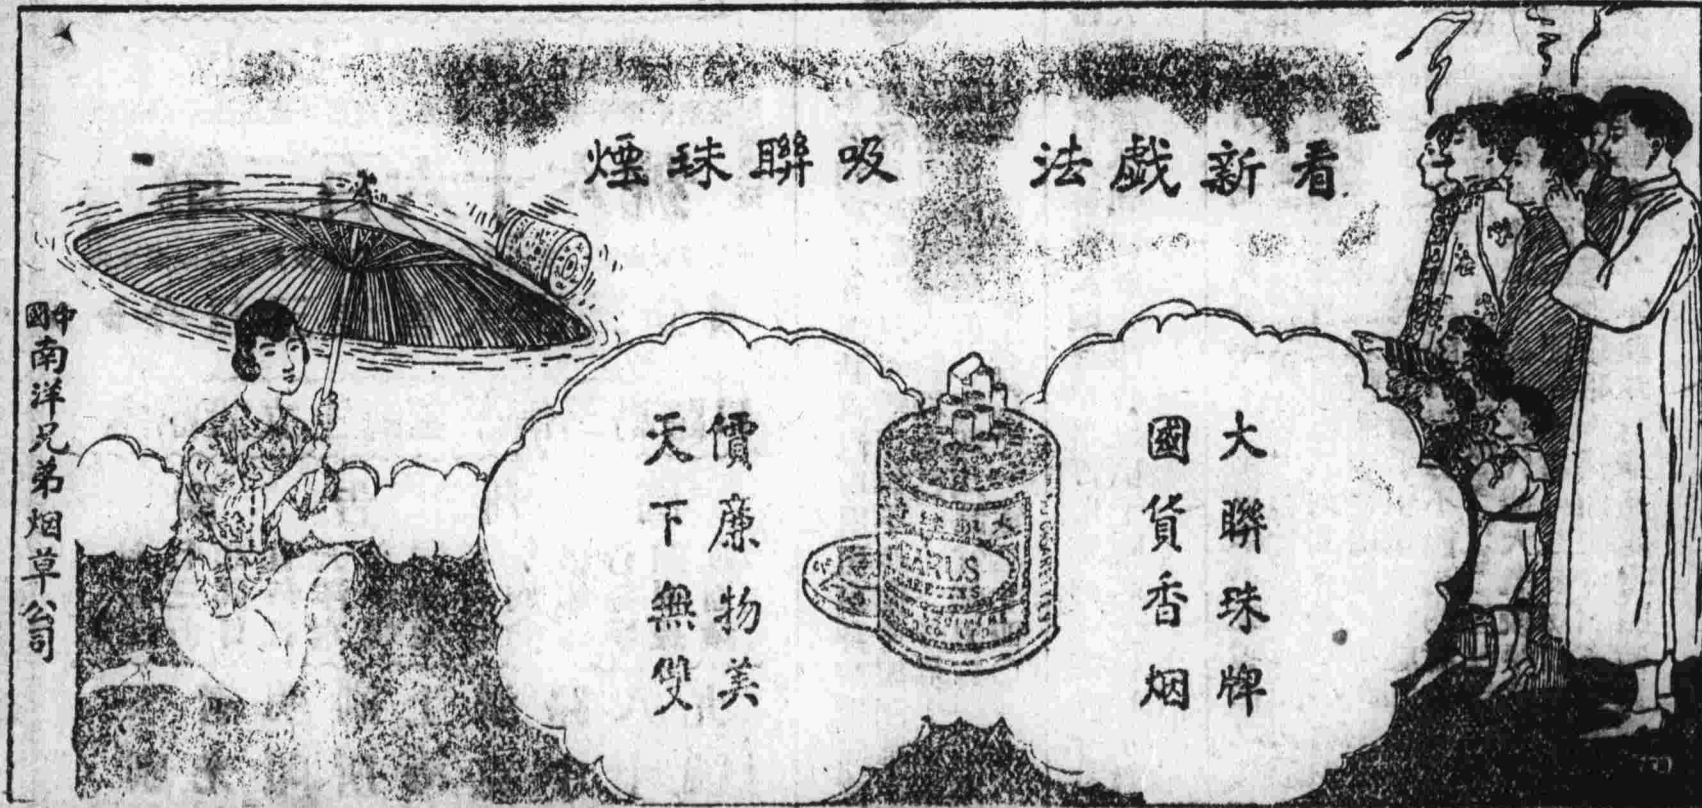 看新戲法
吸聯珠煙
大聯珠牌
國貨香烟
價廉物美
天下無雙
大聯珠
中國南洋兄弟烟草公司